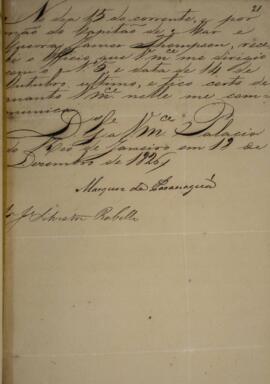 21
No dia 15 do corrente, e por
mão do Capitão de Mar e
Guerra James Thompson, rece
bi o Officio que Vmce me dirigio
com o Nº 3, e data de 14 de
Outubro ultimo, e fico certo de
quanto Vmce nelle me com
munica.
Ds Ge a Vmce Palacio
do Rio de Janeiro em 19 de
Dezembro de 1826
Marquez de Paranaguá
Sr Je Silvestre Rebello